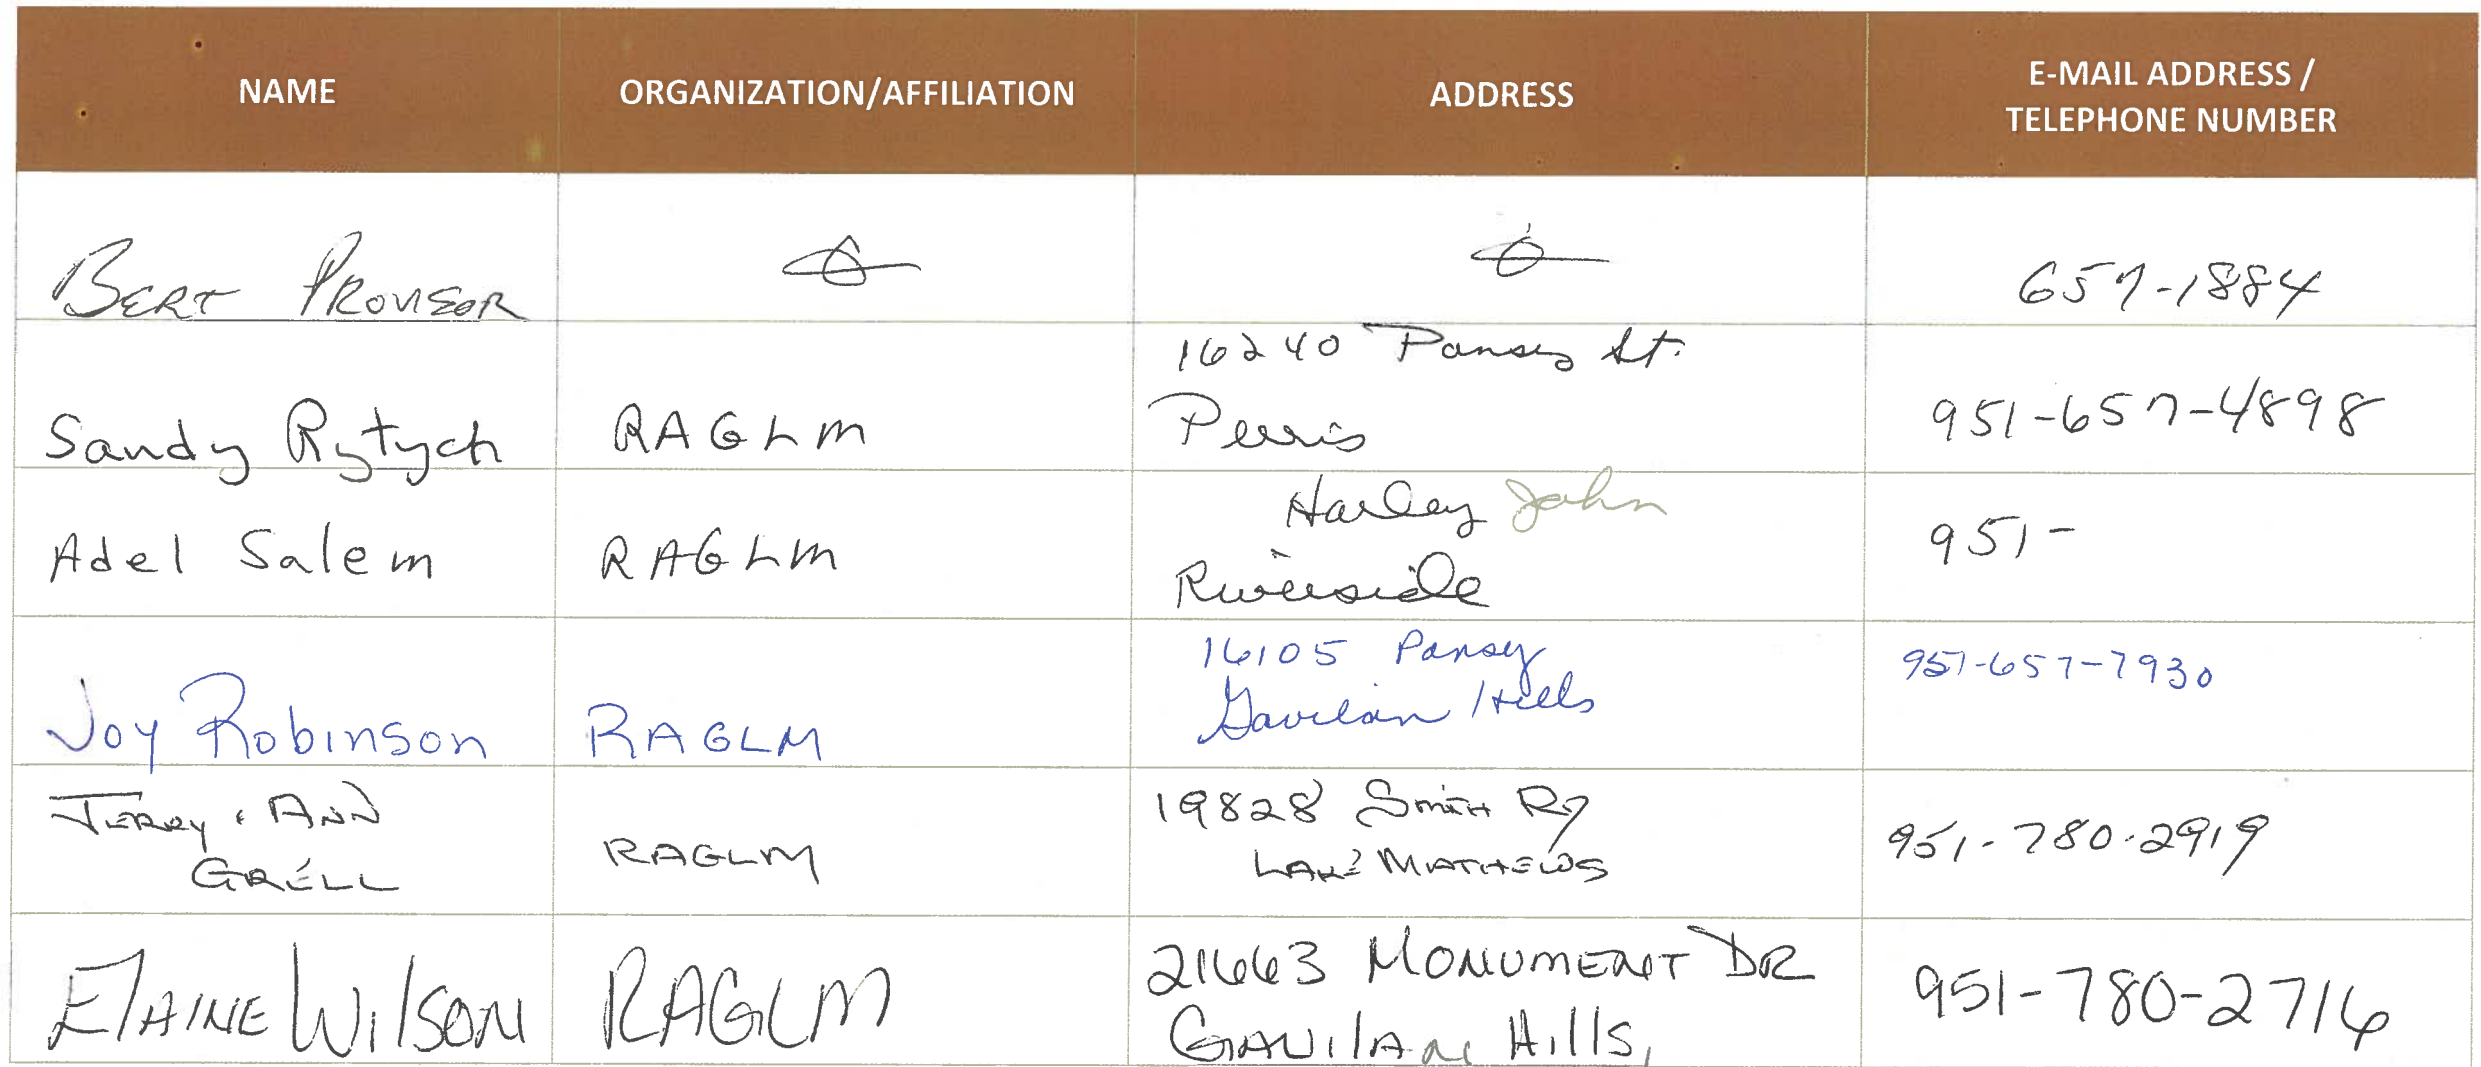 NAME
ORGANIZATION/AFFILIATION
ADDRESS
E-MAIL ADDRESS /
TELEPHONE NUMBER
BERT PROVISOR
657-1884
Sandy Rytych
RAGLM
16240 Pansy St.
Perris
951-657-4898
Adel Salem
RAGLM
Harley John
Riverside
951-
Joy Robinson
RAGLM
16105 Pansy
Gavilan Hills
951-657-7930
JERRY & ANN
GRELL
RAGLM
19828 SMITH RD
LAKE MATHEWS
951-780-2919
ELAINE WILSON
RAGLM
21663 MONUMENT DR
GAVILAN Hills,
951-780-2716